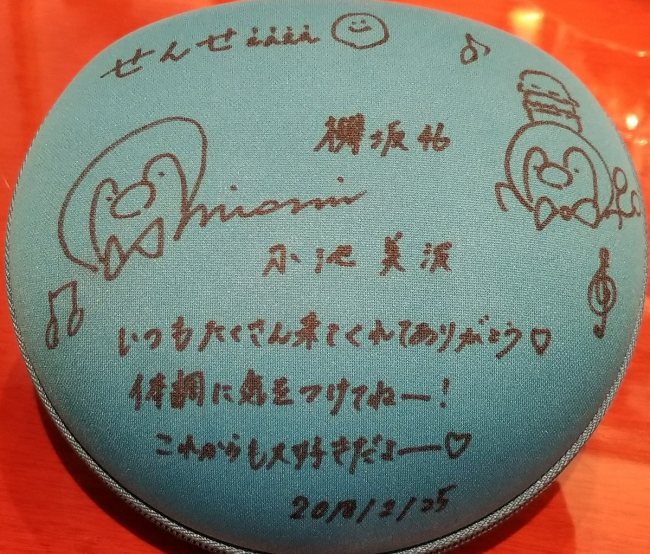 せんせぇぇぇぇ
欅坂46
minami
小池美波
いつもたくさん来てくれてありがとう♡
体調に気をつけてねー!
これからも大好きだよー♡
2018/2/25